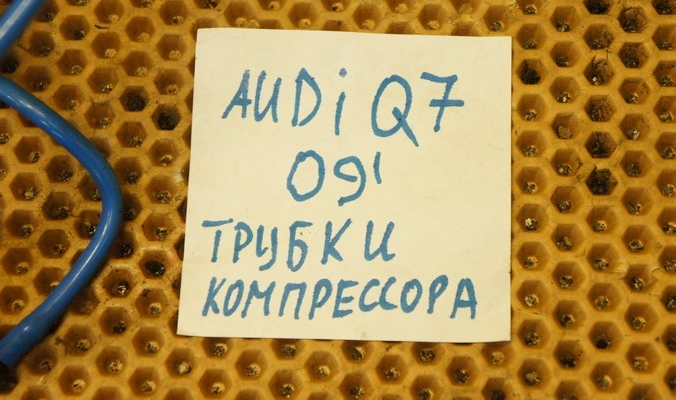 AUDi Q7
09'
ТРУБКИ
КОМПРЕССОРА